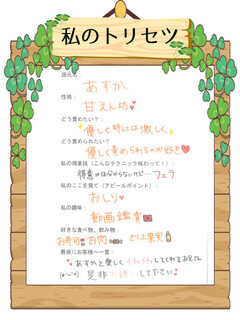 私のトリセツ
源氏名：
あすか
性格：
甘えん坊
どう責めたい？：
優しく時には激しく
どう責められたい？：
優しく責められるのが好き
私の得意技（こんなテクニック味わって！）：
得意かは分からないけど…フェラ
私のここを見て（アピールポイント）：
おしり
私の趣味：
動画鑑賞
好きな食べ物、飲み物：
お寿司 お肉 さりぷ果実
最後にお客様へ一言：
あすかと楽しくイチャイチャしてくれるお兄さん
是非お誘いして下さい